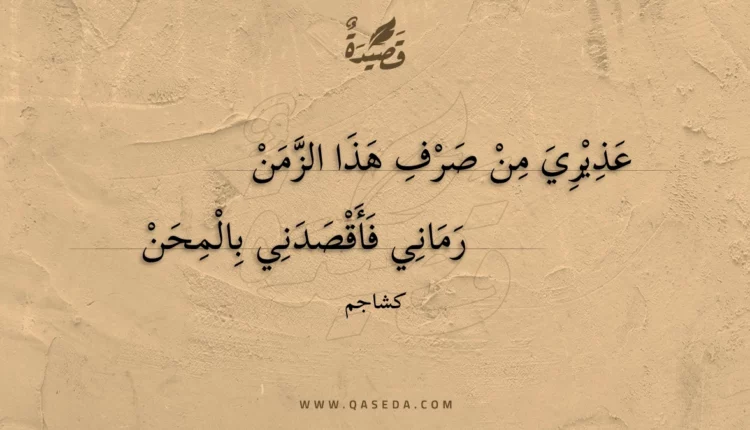 قَصِيْدَةٌ
عَذِيْرِيَ مِنْ صَرْفِ هَذَا الزَّمَنْ
رَمَانِي فَأَقْصَدَنِي بِالْمِحَنْ
كشاجم
WWW.QASEDA.COM